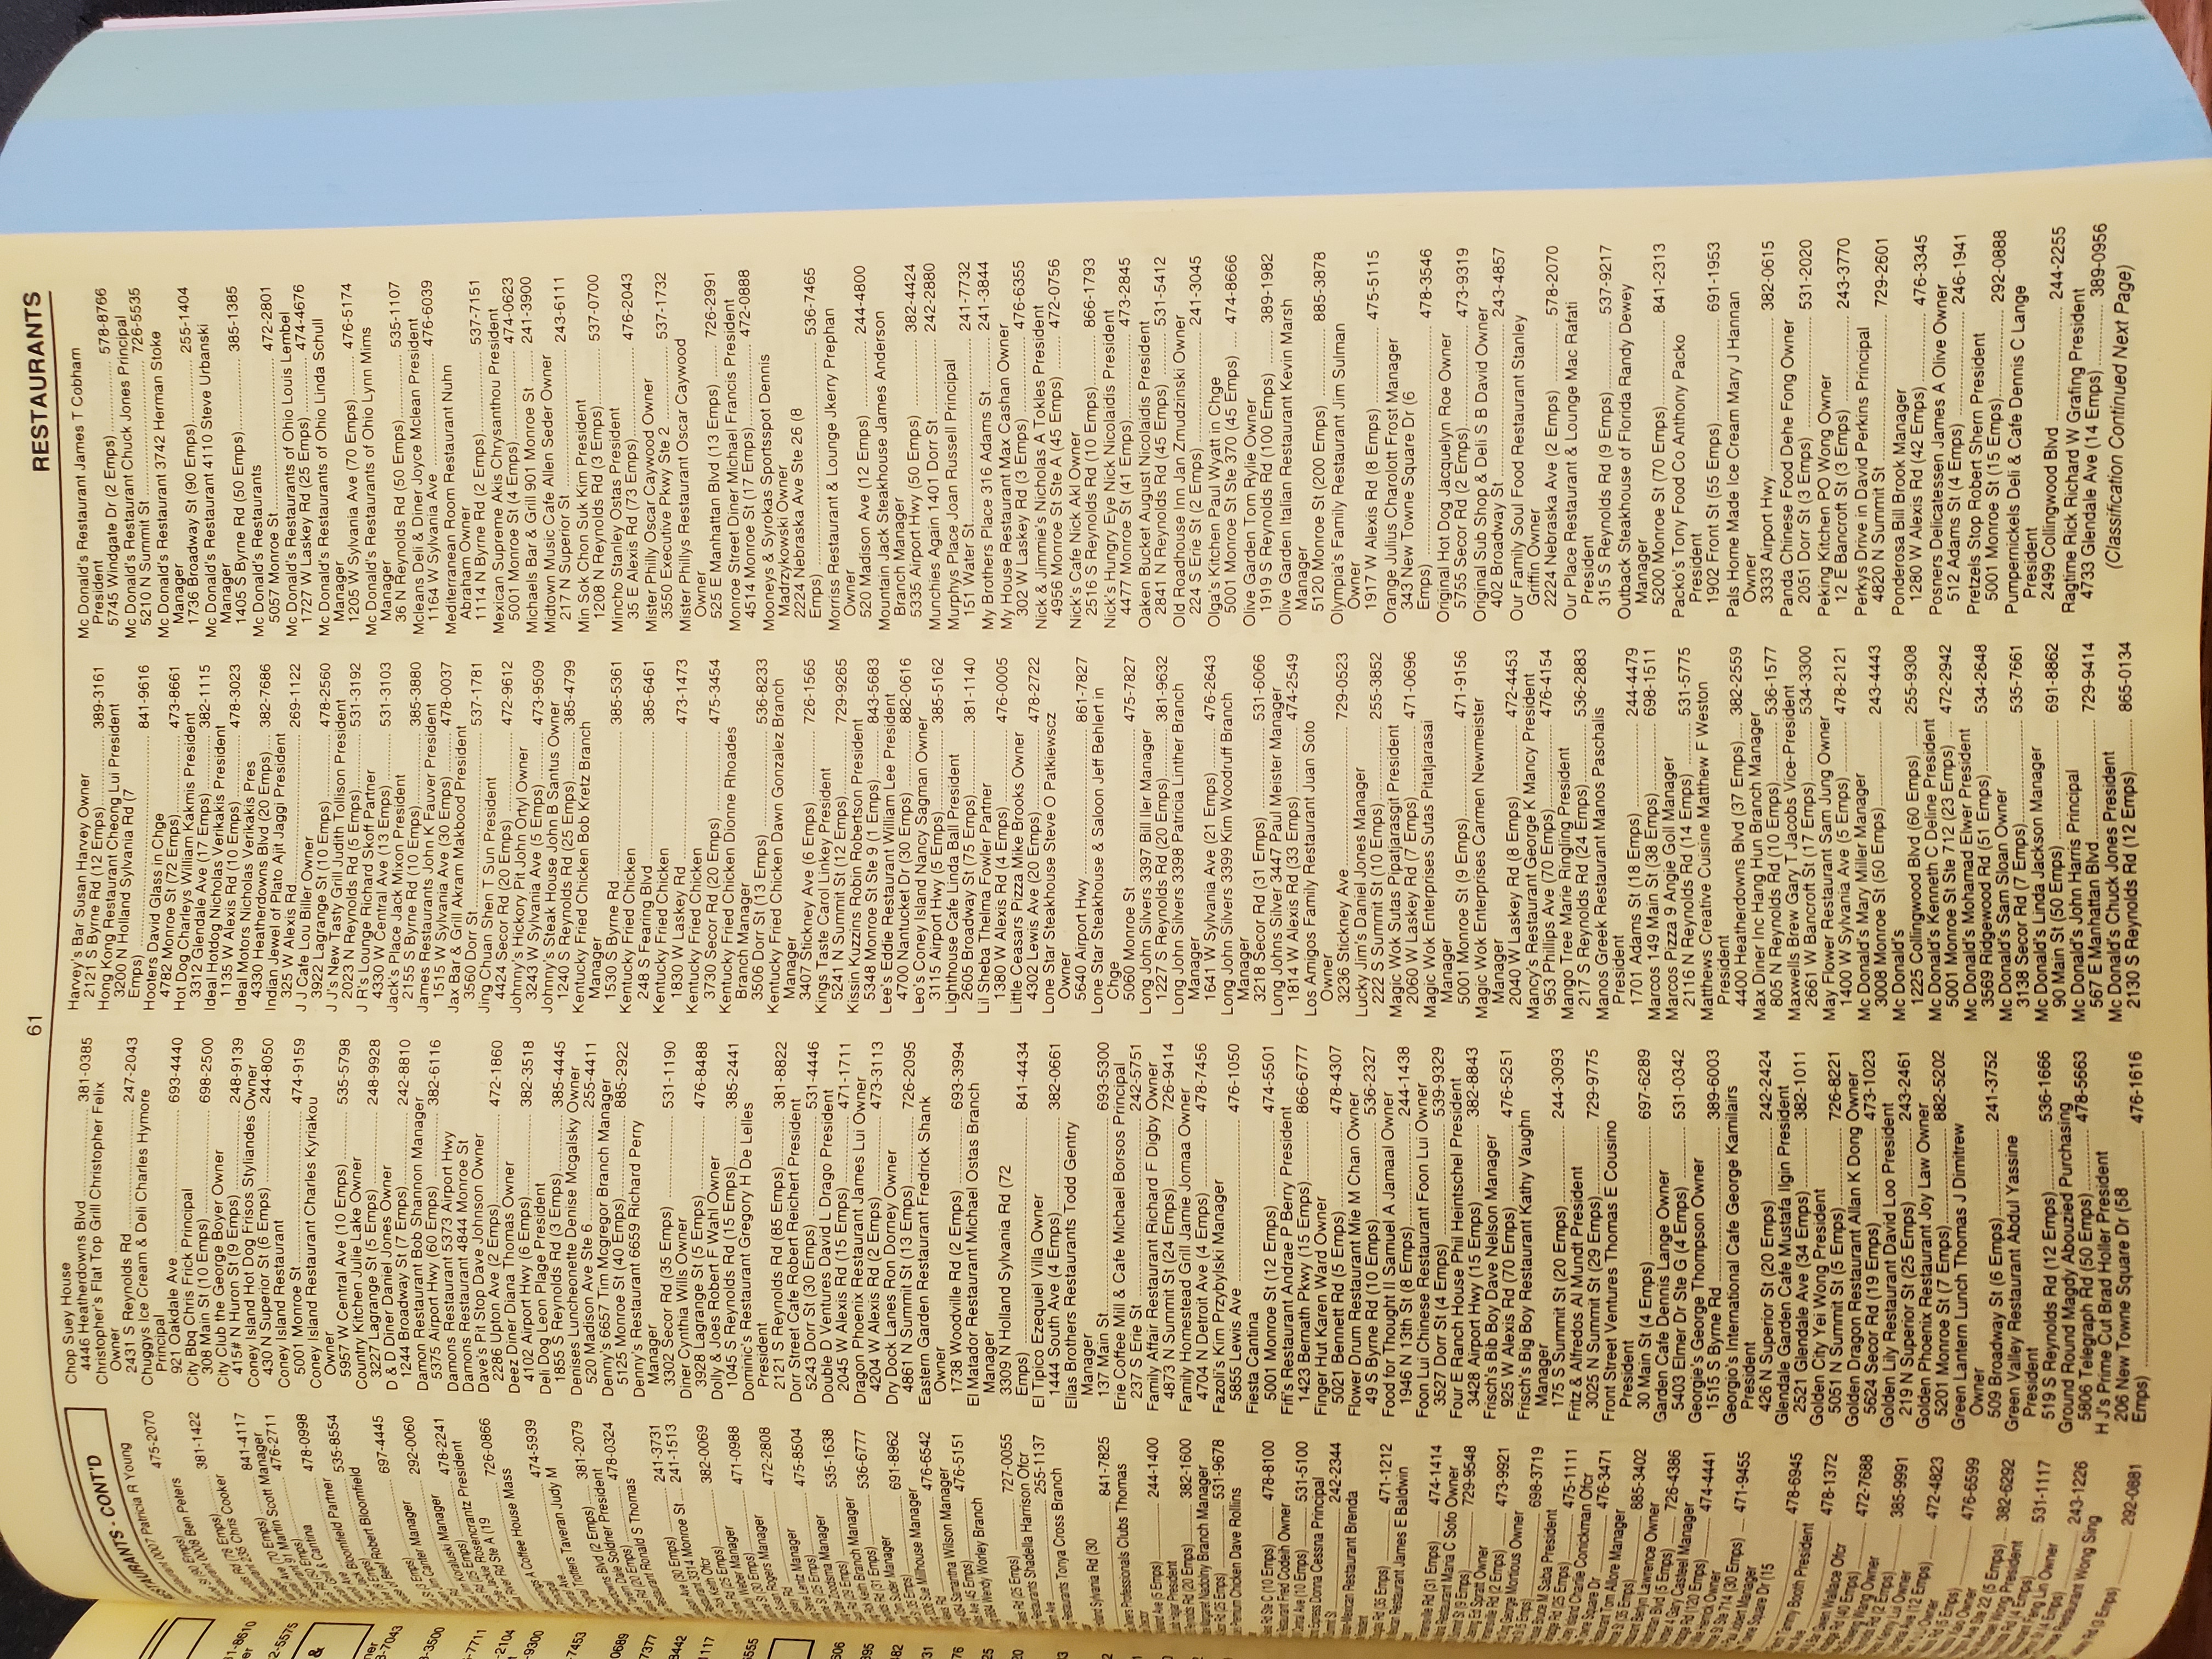 61
RESTAURANTS
RESTAURANTS - CONT'D
Patricia R Young
475-2070
Ben Peters
381-1422
Chris Cooker
841-4117
Martin Scott Manager
476-2711
478-0998
Bloomfield Partner
535-8554
Robert Bloomfield
697-4445
292-0060
Manager
478-2241
Rosencrantz President
726-0866
Coffee House Mass
474-5939
Trotters Taveran Judy M
381-2079
Soldner President
478-0324
Ronald S Thomas
241-3731
3314 Monroe St 241-1513
382-0069
Manager
471-0988
Rogers Manager
472-2808
Manager
475-8504
Manager
535-1638
Branch Manager
536-6777
Manager
691-8962
Milhouse Manager
476-6542
Samantha Wilson Manager
476-5151
Wendy Worley Branch
727-0055
Shadella Harrison Ofcr
255-1137
Restaurants Tonya Cross Branch
Sylvania Rd (30
841-7825
Professionals Clubs Thomas
244-1400
President
382-1600
Branch Manager
531-9678
Chicken Dave Rollins
478-8100
Fred Codeih Owner
531-5100
Donna Cessna Principal
242-2344
Restaurant Brenda
471-1212
Restaurant James E Baldwin
474-1414
Restaurant Maria C Soto Owner
729-9548
Ed Spratt Owner
473-9921
George Morious Owner
698-3719
M Saba President
475-1111
Charlie Conickman Ofcr
476-3471
Tom Allore Manager
885-3402
Lawrence Owner
726-4386
Gary Casteel Manager
474-4441
Owner
471-9455
Manager
Square Dr (15
478-6945
Tammy Booth President
478-1372
Gwen Wallace Ofcr
472-7688
Wang Owner
385-9991
Lui Owner
472-4823
Owner
476-6599
Owner
382-6292
Wong President
531-1117
Feng Lin Owner
243-1226
Restaurant Wong Sing
292-0881
Chop Suey House
4446 Heatherdowns Blvd 381-0385
Christopher's Flat Top Grill Christopher Felix
Owner
2431 S Reynolds Rd 247-2043
Chuggys Ice Cream & Deli Charles Hymore
Principal
921 Oakdale Ave 693-4440
City Bbq Chris Frick Principal
308 Main St (10 Emps) 698-2500
City Club the George Boyer Owner
415# N Huron St (9 Emps) 248-9139
Coney Island Hot Dog Frisos Styliandes Owner
430 N Superior St (6 Emps) 244-8050
Coney Island Restaurant
5001 Monroe St 474-9159
Coney Island Restaurant Charles Kyriakou
Owner
5957 W Central Ave (10 Emps) 535-5798
Country Kitchen Julie Lake Owner
3227 Lagrange St (5 Emps) 248-9928
D & D Diner Daniel Jones Owner
1244 Broadway St (7 Emps) 242-8810
Damon Restaurant Bob Shannon Manager
5375 Airport Hwy (60 Emps) 382-6116
Damons Restaurant 5373 Airport Hwy
Damons Restaurant 4844 Monroe St
Dave's Pit Stop Dave Johnson Owner
2286 Upton Ave (2 Emps) 472-1860
Deez Diner Diana Thomas Owner
4102 Airport Hwy (6 Emps) 382-3518
Deli Dog Leon Plage President
1855 S Reynolds Rd (3 Emps) 385-4445
Denises Luncheonette Denise Mcgalsky Owner
520 Madison Ave Ste 6 255-4411
Denny's 6657 Tim Mcgregor Branch Manager
5125 Monroe St (40 Emps) 885-2922
Denny's Restaurant 6659 Richard Perry
Manager
3302 Secor Rd (35 Emps) 531-1190
Diner Cynthia Wills Owner
3928 Lagrange St (5 Emps) 476-8488
Dolly & Joes Robert F Wahl Owner
1045 S Reynolds Rd (15 Emps) 385-2441
Dominic's Restaurant Gregory H De Lelles
President
2121 S Reynolds Rd (85 Emps) 381-8822
Dorr Street Cafe Robert Reichert President
5243 Dorr St (30 Emps) 531-4446
Double D Ventures David L Drago President
2045 W Alexis Rd (15 Emps) 471-1711
Dragon Phoenix Restaurant James Lui Owner
4204 W Alexis Rd (2 Emps) 473-3113
Dry Dock Lanes Ron Dorney Owner
4861 N Summit St (13 Emps) 726-2095
Eastern Garden Restaurant Fredrick Shank
Owner
1738 Woodville Rd (2 Emps) 693-3994
El Matador Restaurant Michael Ostas Branch
Manager
3309 N Holland Sylvania Rd (72
Emps) 841-4434
El Tipico Ezequiel Villa Owner
1444 South Ave (4 Emps) 382-0661
Elias Brothers Restaurants Todd Gentry
Manager
137 Main St 693-5300
Erie Coffee Mill & Cafe Michael Borsos Principal
237 S Erie St 242-5751
Family Affair Restaurant Richard F Digby Owner
4873 N Summit St (24 Emps) 726-9414
Family Homestead Grill Jamie Jomaa Owner
4704 N Detroit Ave (4 Emps) 478-7456
Fazoli's Kim Przybylski Manager
5855 Lewis Ave 476-1050
Fiesta Cantina
5001 Monroe St (12 Emps) 474-5501
Fifi's Restaurant Andrae P Berry President
1423 Bernath Pkwy (15 Emps) 866-6777
Finger Hut Karen Ward Owner
5021 Bennett Rd (5 Emps) 478-4307
Flower Drum Restaurant Mie M Chan Owner
49 S Byrne Rd (10 Emps) 536-2327
Food for Thought III Samuel A Jamaal Owner
1946 N 13th St (8 Emps) 244-1438
Foon Lui Chinese Restaurant Foon Lui Owner
3527 Dorr St (4 Emps) 539-9329
Four E Ranch House Phil Heintschel President
3428 Airport Hwy (15 Emps) 382-8843
Frisch's Bib Boy Dave Nelson Manager
925 W Alexis Rd (70 Emps) 476-5251
Frisch's Big Boy Restaurant Kathy Vaughn
Manager
175 S Summit St (20 Emps) 244-3093
Fritz & Alfredos Al Mundt President
3025 N Summit St (29 Emps) 729-9775
Front Street Ventures Thomas E Cousino
President
30 Main St (4 Emps) 697-6289
Garden Cafe Dennis Lange Owner
5403 Elmer Dr Ste G (4 Emps) 531-0342
Georgie's George Thompson Owner
1515 S Byrne Rd 389-6003
Georgio's International Cafe George Kamilairs
President
426 N Superior St (20 Emps) 242-2424
Glendale Garden Cafe Mustafa Ilgin President
2521 Glendale Ave (34 Emps) 382-1011
Golden City Yei Wong President
5051 N Summit St (5 Emps) 726-8221
Golden Dragon Restaurant Allan K Dong Owner
5624 Secor Rd (19 Emps) 473-1023
Golden Lily Restaurant David Loo President
219 N Superior St (25 Emps) 243-2461
Golden Phoenix Restaurant Joy Law Owner
5201 Monroe St (7 Emps) 882-5202
Green Lantern Lunch Thomas J Dimitrew
Owner
509 Broadway St (6 Emps) 241-3752
Green Valley Restaurant Abdul Yassine
President
519 S Reynolds Rd (12 Emps) 536-1666
Ground Round Magdy Abouzied Purchasing
5806 Telegraph Rd (50 Emps) 478-5663
H J's Prime Cut Brad Holler President
206 New Towne Square Dr (58
Emps) 476-1616
Harvey's Bar Susan Harvey Owner
2121 S Byrne Rd (12 Emps) 389-3161
Hong Kong Restaurant Cheong Lui President
3200 N Holland Sylvania Rd (7
Emps) 841-9616
Hooters David Glass in Chge
4782 Monroe St (72 Emps) 473-8661
Hot Dog Charleys William Kakmis President
3312 Glendale Ave (17 Emps) 382-1115
Ideal Hotdog Nicholas Verikakis President
1135 W Alexis Rd (10 Emps) 478-3023
Ideal Motors Nicholas Verikakis Pres
4330 Heatherdowns Blvd (20 Emps) 382-7686
Indian Jewel of Plato Ajit Jaggi President
325 W Alexis Rd 269-1122
J J Cafe Lou Biller Owner
3922 Lagrange St (10 Emps) 478-2560
J's New Tasty Grill Judith Tollison President
2023 N Reynolds Rd (5 Emps) 531-3192
J R's Lounge Richard Skoff Partner
4330 W Central Ave (13 Emps) 531-3103
Jack's Place Jack Mixon President
2155 S Byrne Rd (10 Emps) 385-3880
James Restaurants John K Fauver President
1515 W Sylvania Ave (30 Emps) 478-0037
Jax Bar & Grill Akram Makbood President
3560 Dorr St 537-1781
Jing Chuan Shen T Sun President
4424 Secor Rd (20 Emps) 472-9612
Johnny's Hickory Pit John Ortyl Owner
3243 W Sylvania Ave (5 Emps) 473-9509
Johnny's Steak House John B Santus Owner
1240 S Reynolds Rd (25 Emps) 385-4799
Kentucky Fried Chicken Bob Kretz Branch
Manager
1530 S Byrne Rd 385-5361
Kentucky Fried Chicken
248 S Fearing Blvd 385-6461
Kentucky Fried Chicken
1830 W Laskey Rd 473-1473
Kentucky Fried Chicken
3730 Secor Rd (20 Emps) 475-3454
Kentucky Fried Chicken Dionne Rhoades
Branch Manager
3506 Dorr St (13 Emps) 536-8233
Kentucky Fried Chicken Dawn Gonzalez Branch
Manager
3407 Stickney Ave (6 Emps) 726-1565
Kings Taste Carol Linkey President
5241 N Summit St (12 Emps) 729-9265
Kissin Kuzzins Robin Robertson President
5348 Monroe St Ste 9 (1 Emps) 843-5683
Lee's Eddie Restaurant William Lee President
4700 Nantucket Dr (30 Emps) 882-0616
Leo's Coney Island Nancy Sagman Owner
3115 Airport Hwy (5 Emps) 385-5162
Lighthouse Cafe Linda Ball President
2605 Broadway St (75 Emps) 381-1140
Lil Sheba Thelma Fowler Partner
1380 W Alexis Rd (4 Emps) 476-0005
Little Ceasars Pizza Mike Brooks Owner
4302 Lewis Ave (20 Emps) 478-2722
Lone Star Steakhouse Steve O Patkiewscz
Owner
5640 Airport Hwy 861-7827
Lone Star Steakhouse & Saloon Jeff Behlert in
Chge
5060 Monroe St 475-7827
Long John Silvers 3397 Bill Iller Manager
1227 S Reynolds Rd (20 Emps) 381-9632
Long John Silvers 3398 Patricia Linther Branch
Manager
1641 W Sylvania Ave (21 Emps) 476-2643
Long John Silvers 3399 Kim Woodruff Branch
Manager
3218 Secor Rd (31 Emps) 531-6066
Long John Silver 3447 Paul Meister Manager
1814 W Alexis Rd (33 Emps) 474-2549
Los Amigos Family Restaurant Juan Soto
Owner
3236 Stickney Ave 729-0523
Lucky Jim's Daniel Jones Manager
222 S Summit St (10 Emps) 255-3852
Magic Wok Sutas Pipatjarasgit President
2060 W Laskey Rd (7 Emps) 471-0696
Magic Wok Enterprises Sutas Pitatjarasai
Manager
5001 Monroe St (9 Emps) 471-9156
Magic Wok Enterprises Carmen Newmeister
Manager
2040 W Laskey Rd (8 Emps) 472-4453
Mancy's Restaurant George K Mancy President
953 Phillips Ave (70 Emps) 476-4154
Mango Tree Marie Ringling President
217 S Reynolds Rd (24 Emps) 536-2883
Manos Greek Restaurant Manos Paschalis
President
1701 Adams St (18 Emps) 244-4479
Marcos 149 Main St (38 Emps) 698-1511
Marcos Pizza 9 Angie Goll Manager
2116 N Reynolds Rd (14 Emps) 531-5775
Matthews Creative Cuisine Matthew F Weston
President
4400 Heatherdowns Blvd (37 Emps) 382-2559
Max Diner Inc Hang Hun Branch Manager
805 N Reynolds Rd (10 Emps) 536-1577
Maxwells Brew Gary T Jacobs Vice-President
2661 W Bancroft St (17 Emps) 534-3300
May Flower Restaurant Sam Jung Owner
1400 W Sylvania Ave (5 Emps) 478-2121
Mc Donald's Mary Miller Manager
3008 Monroe St (50 Emps) 243-4443
Mc Donald's
1225 Collingwood Blvd (60 Emps) 255-9308
Mc Donald's Kenneth C Deline President
5001 Monroe St Ste 712 (23 Emps) 472-2942
Mc Donald's Mohamad Elwer President
3569 Ridgewood Rd (51 Emps) 534-2648
Mc Donald's Sam Sloan Owner
3138 Secor Rd (7 Emps) 535-7661
Mc Donald's Linda Jackson Manager
90 Main St (50 Emps) 691-8862
Mc Donald's John Harris Principal
567 E Manhattan Blvd 729-9414
Mc Donald's Chuck Jones President
2130 S Reynolds Rd (12 Emps) 865-0134
Mc Donald's Restaurant James T Cobham
President
5745 Windgate Dr (2 Emps) 578-8766
Mc Donald's Restaurant Chuck Jones Principal
5210 N Summit St 726-5535
Mc Donald's Restaurant 3742 Herman Stoke
Manager
1736 Broadway St (90 Emps) 255-1404
Mc Donald's Restaurant 4110 Steve Urbanski
Manager
1405 S Byrne Rd (50 Emps) 385-1385
Mc Donald's Restaurants
5057 Monroe St 472-2801
Mc Donald's Restaurants of Ohio Louis Lembel
1727 W Laskey Rd (25 Emps) 474-4676
Mc Donald's Restaurants of Ohio Linda Schull
Manager
1205 W Sylvania Ave (70 Emps) 476-5174
Mc Donald's Restaurants of Ohio Lynn Mims
Manager
36 N Reynolds Rd (50 Emps) 535-1107
Mcleans Deli & Diner Joyce Mclean President
1164 W Sylvania Ave 476-6039
Mediterranean Room Restaurant Nuhn
Abraham Owner
1114 N Byrne Rd (2 Emps) 537-7151
Mexican Supreme Akis Chrysanthou President
5001 Monroe St (4 Emps) 474-0623
Michaels Bar & Grill 901 Monroe St 241-3900
Midtown Music Cafe Allen Seder Owner
217 N Superior St 243-6111
Min Sok Chon Suk Kim President
1208 N Reynolds Rd (3 Emps) 537-0700
Mincho Stanley Ostas President
35 E Alexis Rd (73 Emps) 476-2043
Mister Philly Oscar Caywood Owner
3550 Executive Pkwy Ste 2 537-1732
Mister Phillys Restaurant Oscar Caywood
Owner
525 E Manhattan Blvd (13 Emps) 726-2991
Monroe Street Diner Michael Francis President
4514 Monroe St (17 Emps) 472-0888
Mooneys & Syrokas Sportsspot Dennis
Madrzykowski Owner
2224 Nebraska Ave Ste 26 (8
Emps) 536-7465
Morriss Restaurant & Lounge Jkerry Prephan
Owner
520 Madison Ave (12 Emps) 244-4800
Mountain Jack Steakhouse James Anderson
Branch Manager
5335 Airport Hwy (50 Emps) 382-4424
Munchies Again 1401 Dorr St 242-2880
Murphys Place Joan Russell Principal
151 Water St 241-7732
My Brothers Place 316 Adams St 241-3844
My House Restaurant Max Cashan Owner
302 W Laskey Rd (3 Emps) 476-6355
Nick & Jimmie's Nicholas A Tokles President
4956 Monroe St Ste A (45 Emps) 472-0756
Nick's Cafe Nick Akl Owner
2516 S Reynolds Rd (10 Emps) 866-1793
Nick's Hungry Eye Nick Nicolaidis President
4477 Monroe St (41 Emps) 473-2845
Oaken Bucket August Nicolaidis President
2841 N Reynolds Rd (45 Emps) 531-5412
Old Roadhouse Inn Jan Zmudzinski Owner
224 S Erie St (2 Emps) 241-3045
Olga's Kitchen Paul Wyatt in Chge
5001 Monroe St Ste 370 (45 Emps) 474-8666
Olive Garden Tom Rylie Owner
1919 S Reynolds Rd (100 Emps) 389-1982
Olive Garden Italian Restaurant Kevin Marsh
Manager
5120 Monroe St (200 Emps) 885-3878
Olympia's Family Restaurant Jim Sulman
Owner
1917 W Alexis Rd (8 Emps) 475-5115
Orange Julius Charolott Frost Manager
343 New Towne Square Dr (6
Emps) 478-3546
Original Hot Dog Jacquelyn Roe Owner
5755 Secor Rd (2 Emps) 473-9319
Original Sub Shop & Deli S B David Owner
402 Broadway St 243-4857
Our Family Soul Food Restaurant Stanley
Griffin Owner
2224 Nebraska Ave (2 Emps) 578-2070
Our Place Restaurant & Lounge Mac Rafati
President
315 S Reynolds Rd (9 Emps) 537-9217
Outback Steakhouse of Florida Randy Dewey
Manager
5200 Monroe St (70 Emps) 841-2313
Packo's Tony Food Co Anthony Packo
President
1902 Front St (55 Emps) 691-1953
Pals Home Made Ice Cream Mary J Hannan
Owner
3333 Airport Hwy 382-0615
Panda Chinese Food Dehe Fong Owner
2051 Dorr St (3 Emps) 531-2020
Peking Kitchen PO Wong Owner
12 E Bancroft St (3 Emps) 243-3770
Perkys Drive in David Perkins Principal
4820 N Summit St 729-2601
Ponderosa Bill Brook Manager
1280 W Alexis Rd (42 Emps) 476-3345
Posners Delicatessen James A Olive Owner
512 Adams St (4 Emps) 246-1941
Pretzels Stop Robert Shern President
5001 Monroe St (15 Emps) 292-0888
Pumpernickels Deli & Cafe Dennis C Lange
President
2499 Collingwood Blvd 244-2255
Ragtime Rick Richard W Grafing President
4733 Glendale Ave (14 Emps) 389-0956
(Classification Continued Next Page)